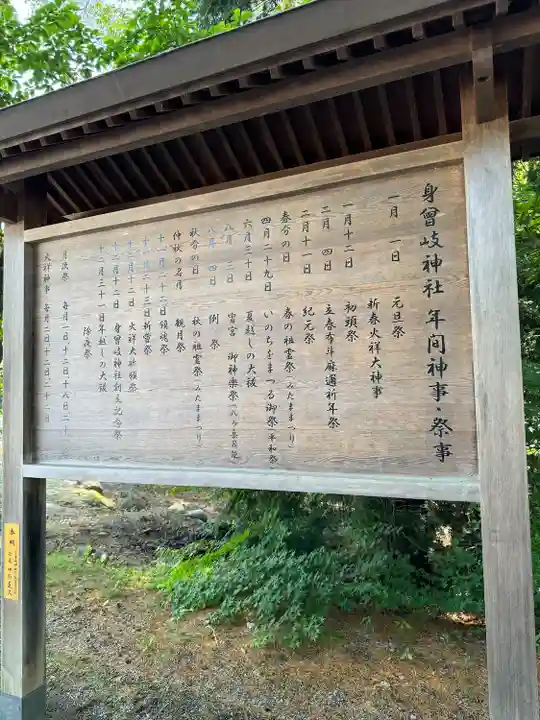 身曾岐神社 年間神事・祭事
一月 一日 元旦祭
新春火祥大神事
一月十二日 初頭祭
二月 四日 立春希斗麻適祈年祭
二月十一日 紀元祭
春分の日 春の祖霊祭(みたままつり)
四月二十九日 いのちをまつる御祭(平和祭)
六月三十日 夏越しの大祓
八月 三日 宵宮 御神楽祭(八ヶ岳薪能)
八月 四日 例祭
秋分の日 秋の祖霊祭(みたままつり)
仲秋の名月 観月祭
十一月二十二日 鎮魂祭
十一月二十三日 新嘗祭
十二月十二日 火祥大砂領祭
十二月十二日 身曾岐神社創立記念祭
十二月三十一日 年越しの大祓
除夜祭
月次祭 毎月一日・十二日・十八日・二十
火祥神事 毎月二日・十二日・二十二日
奉納